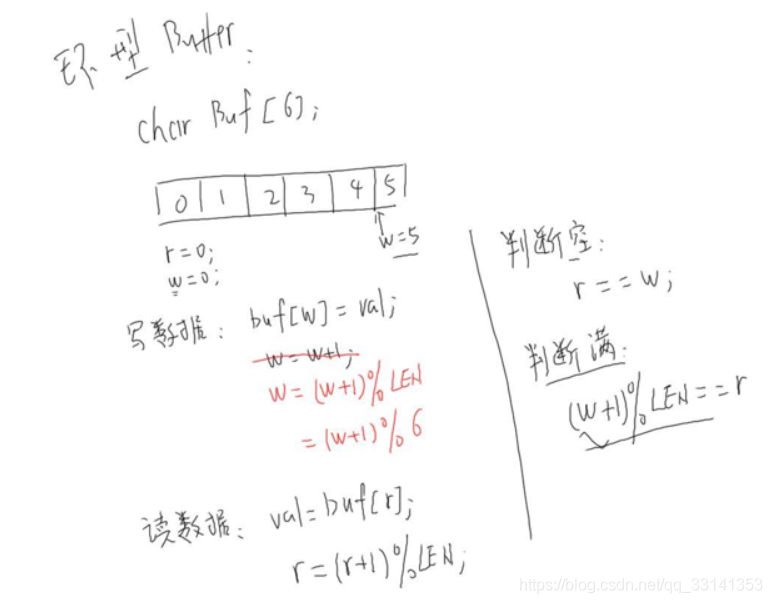 环型 Buffer:
char Buf [6];
0 1 2 3 4 5
r=0;
w=0;
w=5
写数据: buf[w]=val;
w=w+1;
w=(w+1)%LEN
=(w+1)%6
读数据: val=buf[r];
r=(r+1)%LEN;
判断空:
r==w;
判断满:
(w+1)%LEN==r
https://blog.csdn.net/qq_33141353